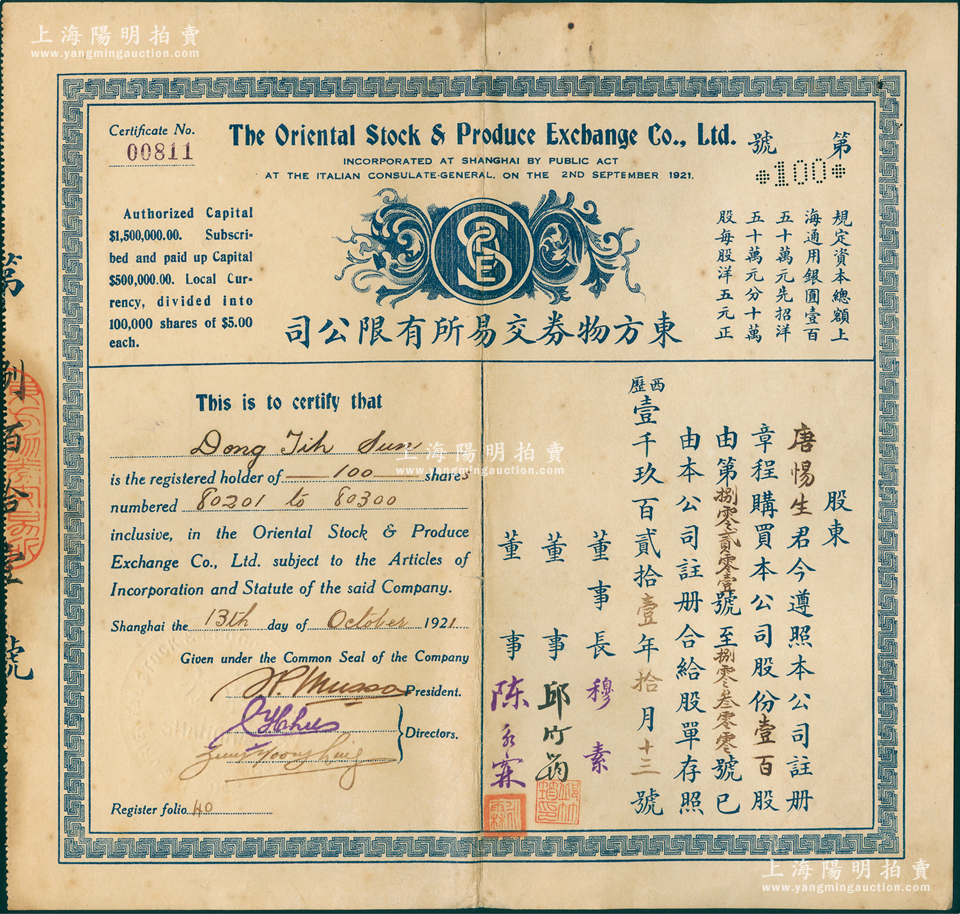 上海陽明拍賣
www.yangmingauction.com
上海陽明拍賣
www.yangmingauction.com
Certificate No.
00811
The Oriental Stock & Produce Exchange Co., Ltd.
INCORPORATED AT SHANGHAI BY PUBLIC ACT
AT THE ITALIAN CONSULATE-GENERAL, ON THE 2ND SEPTEMBER 1921.
第
號
*100*
Authorized Capital
$1,500,000.00. Subscri-
bed and paid up Capital
$500,000.00. Local Cur-
rency, divided into
100,000 shares of $5.00
each.
規定資本總額上
海通用銀圓壹百
五十萬元先招洋
五十萬元分十萬
股每股洋五元正
司公限有所易交券物方東
This is to certify that
Dong Tih Sun
is the registered holder of 100 shares
numbered 80201 to 80300
inclusive, in the Oriental Stock & Produce
Exchange Co., Ltd. subject to the Articles of
Incorporation and Statute of the said Company.
Shanghai the 13th day of October 1921
Given under the Common Seal of the Company
President.
Directors.
Register folio 40
股東
唐惕生君今遵照本公司註册
章程購買本公司股份壹百股
由第捌零貳零壹號至捌零叁零零號已
由本公司註册合給股單存照
西歷壹千玖百貳拾壹年拾月十三號
董事長穆素
董事邱
董事陈
上海陽明拍賣
www.yangmingauction.com
第捌百拾壹號
上海陽明拍賣
www.yangmingauction.com